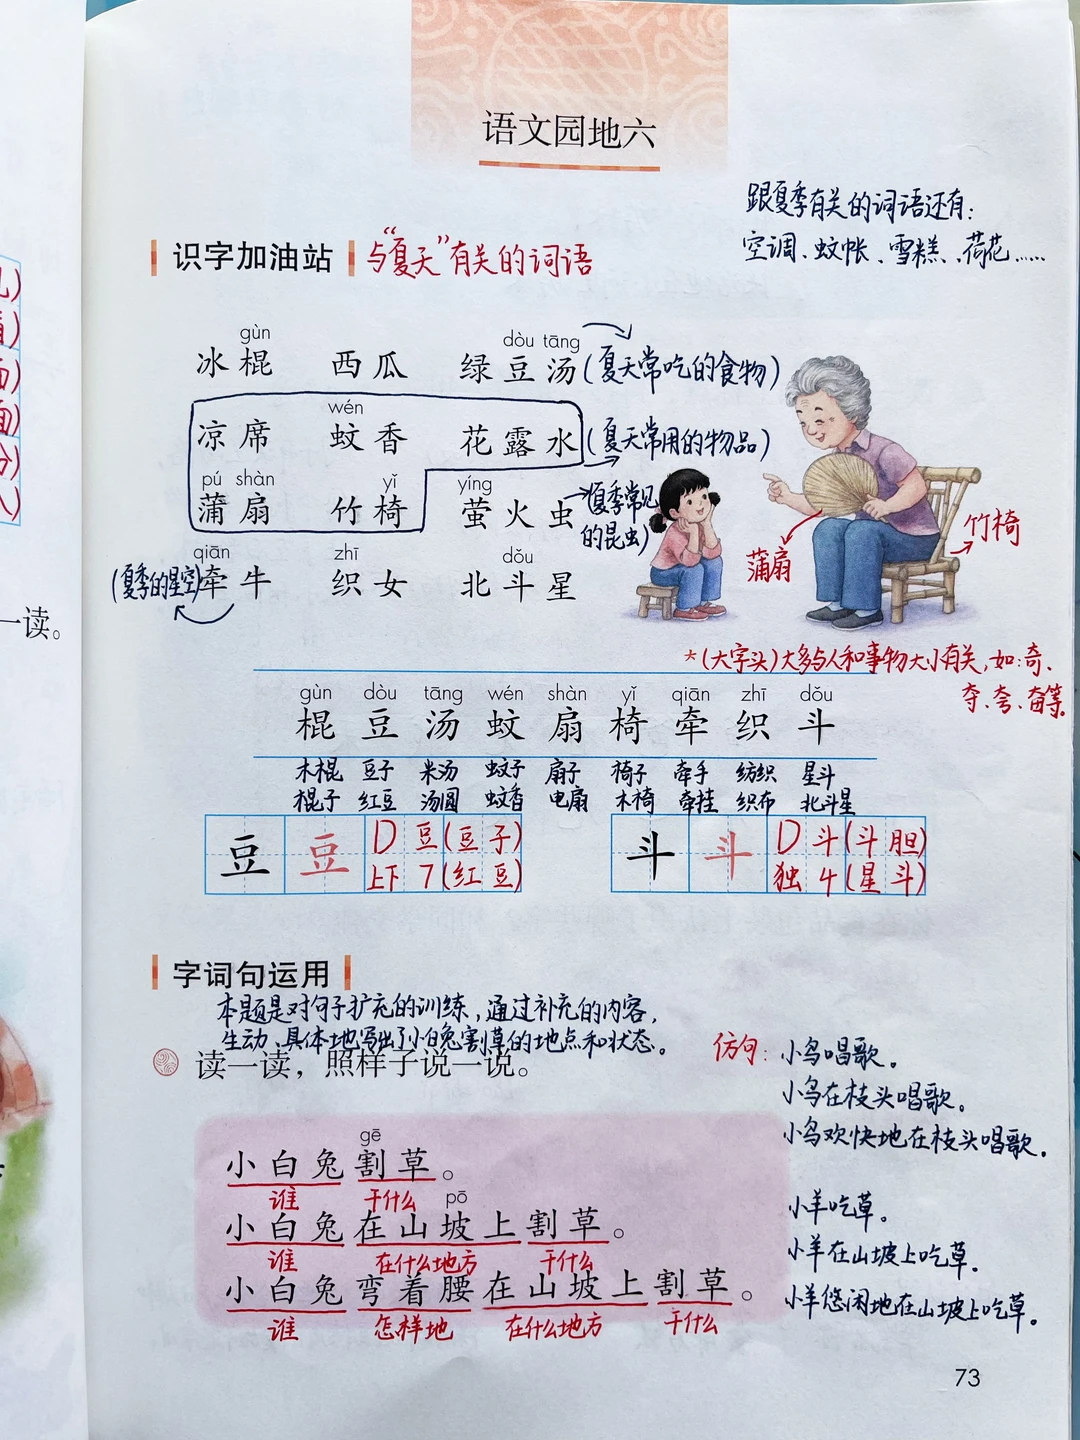 语文园地六
跟夏季有关的词语还有：
空调、蚊帐、雪糕、荷花……
识字加油站 与“夏天”有关的词语
gùn dòu tāng
冰棍 西瓜 绿豆汤(夏天常吃的食物)
wén
凉席 蚊香 花露水(夏天常用的物品)
pú shàn yǐ yíng
蒲扇 竹椅 萤火虫(夏季常见的昆虫)
qiān zhī dǒu
(夏季的星空)牵牛 织女 北斗星
蒲扇
竹椅
*(大字头)大多与人和事物大小有关，如：奇、
夺、夸、奋等。
gùn dòu tāng wén shàn yǐ qiān zhī dǒu
棍 豆 汤 蚊 扇 椅 牵 织 斗
木棍 豆子 米汤 蚊子 扇子 椅子 牵手 纺织 星斗
棍子 红豆 汤圆 蚊香 电扇 木椅 牵挂 织布 北斗星
豆 豆 D 豆(豆子) 斗 斗 D 斗(斗胆)
上下 7(红豆) 独 4(星斗)
字词句运用
本题是对句子扩充的训练，通过补充的内容，
生动、具体地写出了小白兔割草的地点和状态。
读一读，照样子说一说。
仿句：小鸟唱歌。
小鸟在枝头唱歌。
小鸟欢快地在枝头唱歌。
gē
小白兔割草。
谁 干什么
pō
小白兔在山坡上割草。
谁 在什么地方 干什么
小白兔弯着腰在山坡上割草。
谁 怎样地 在什么地方 干什么
小羊吃草。
小羊在山坡上吃草。
小羊悠闲地在山坡上吃草。
73
一读。